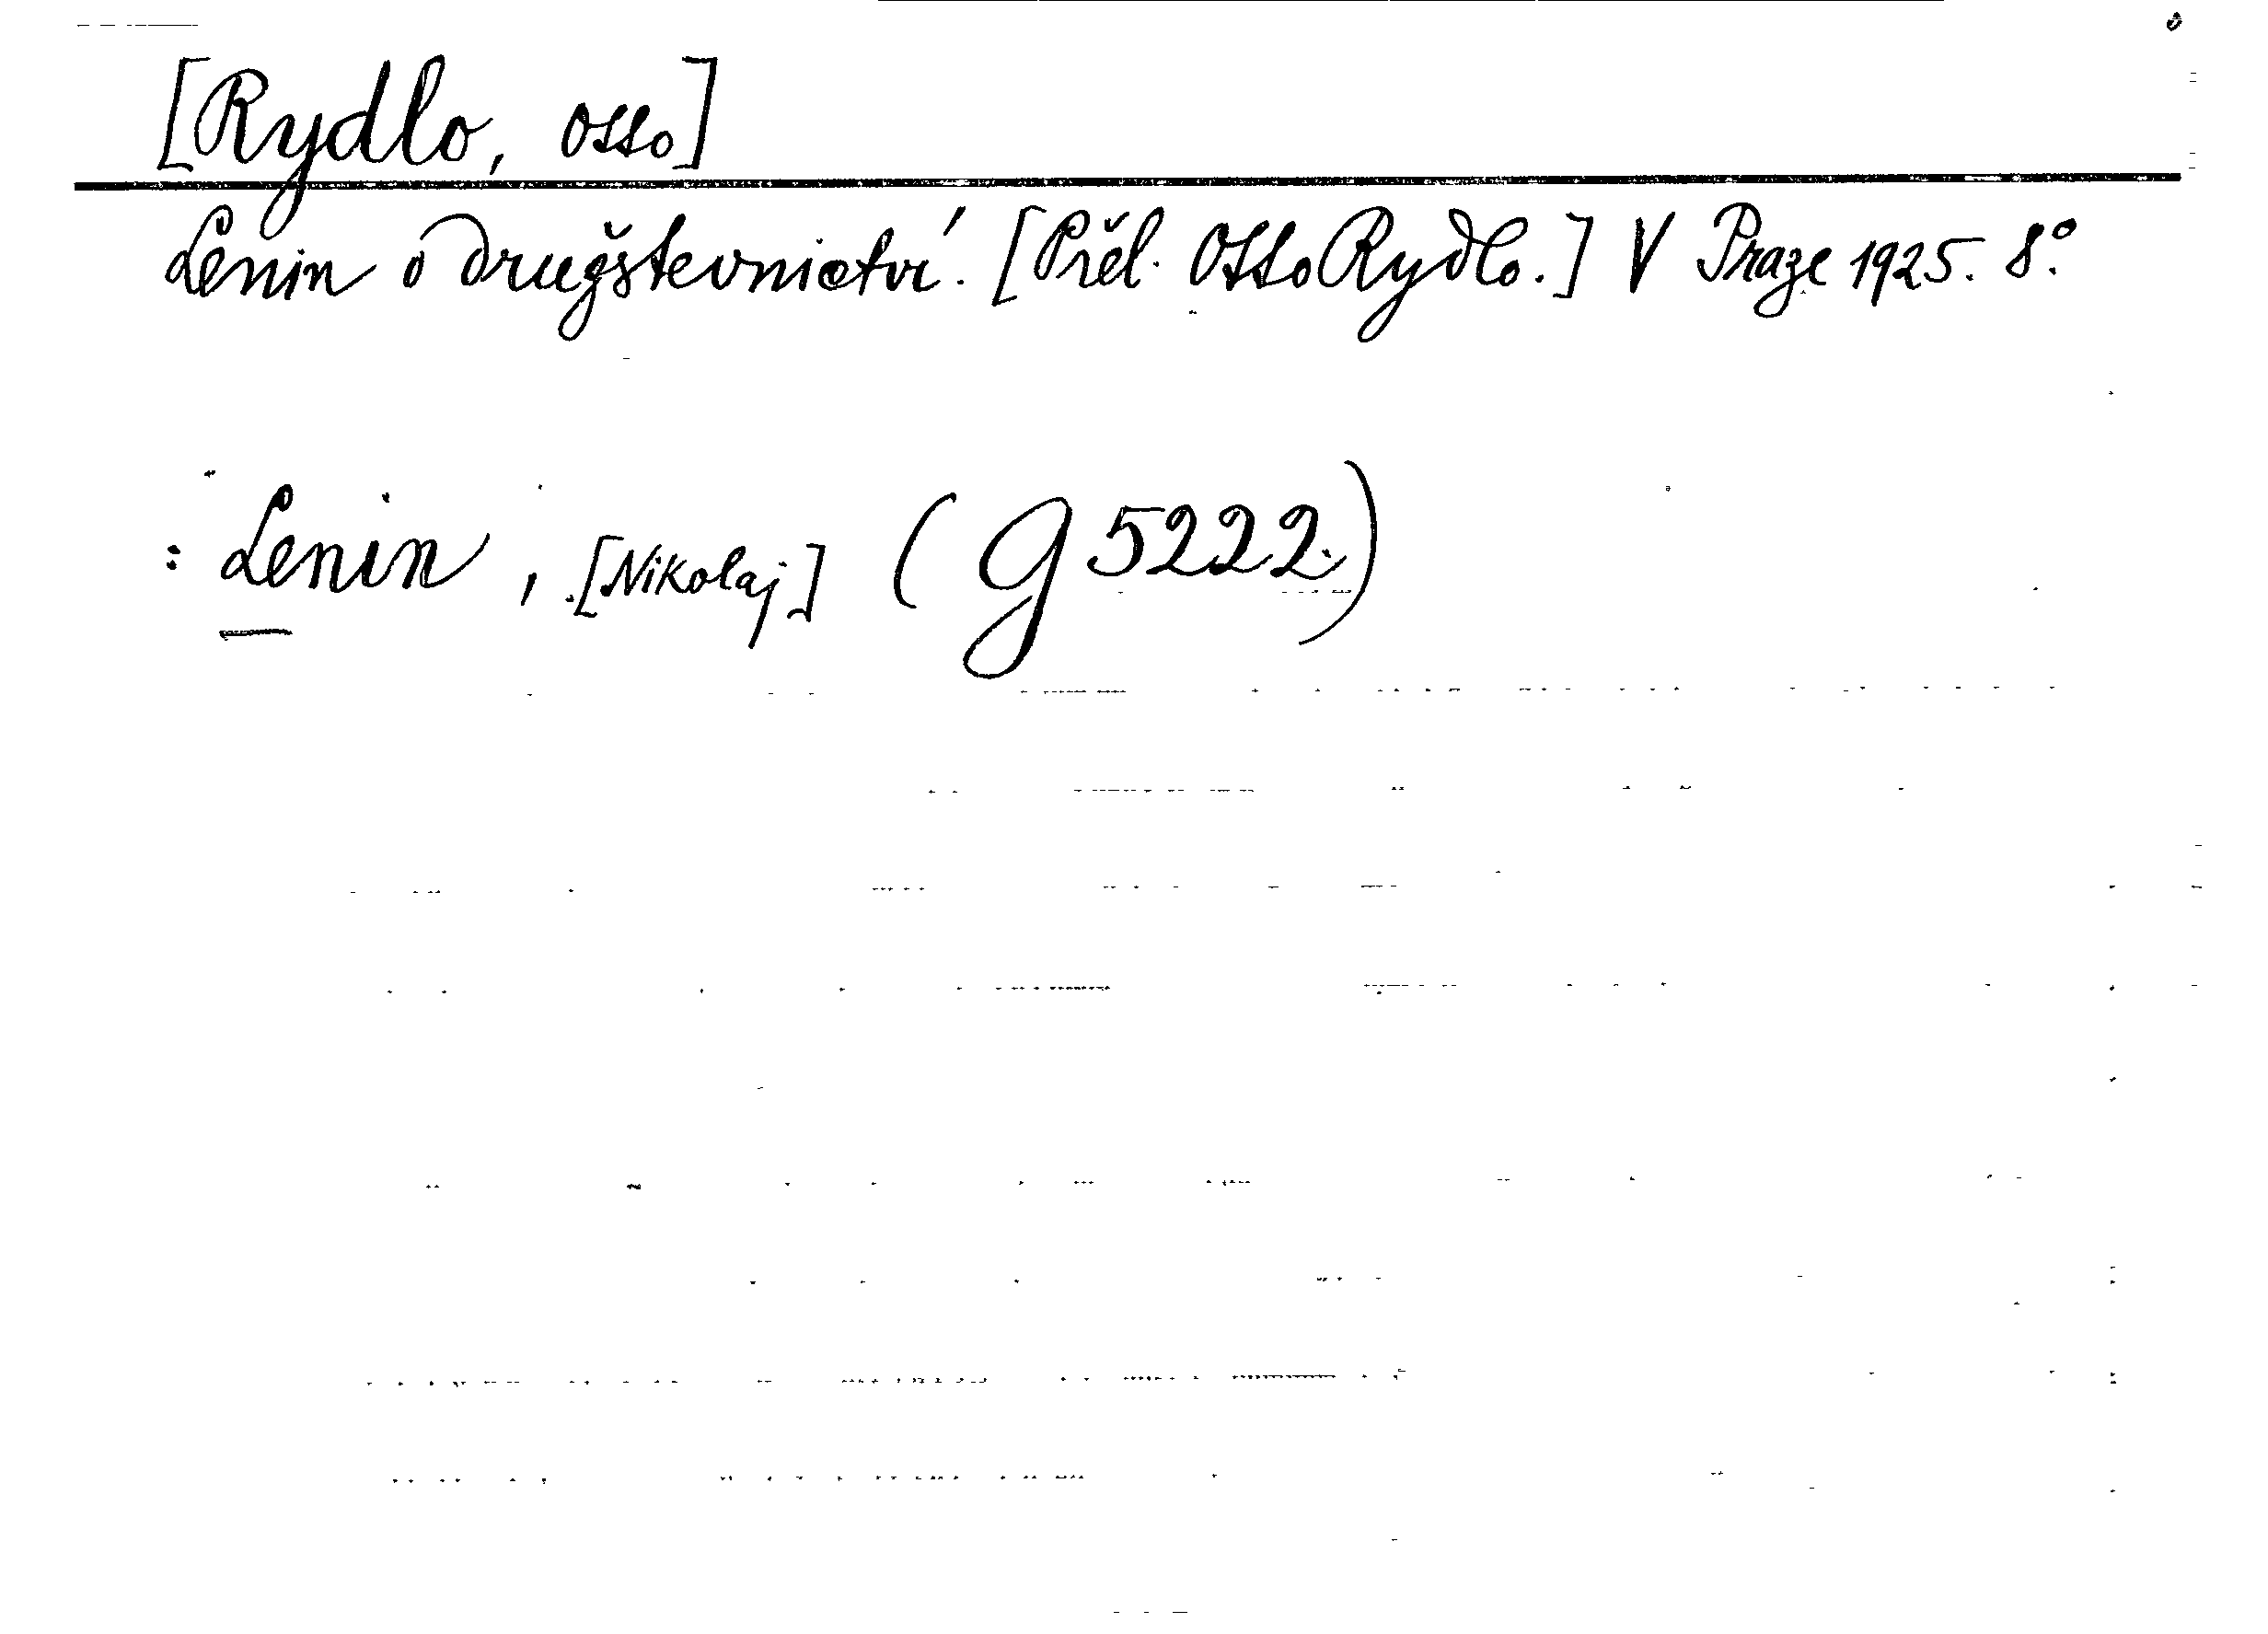 [Rydlo, Otto]
Lenin o družstevnictví. [Přel. Otto Rydlo.] V Praze 1925. 8°.
: Lenin, [Nikolaj] (G 5222)